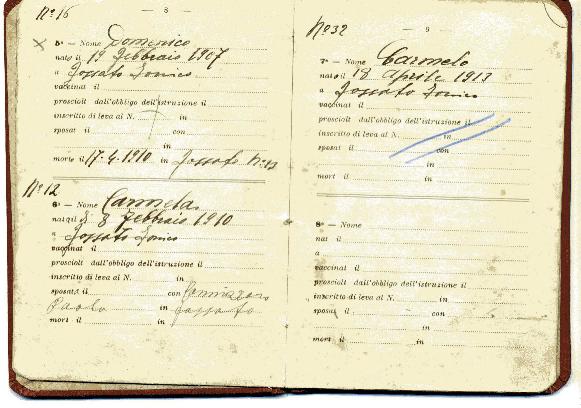 Nº 16
— 8 —
5º – Nome Domenico
nato il 19 Febbraio 1907
a Fossato Ionico
vaccinat il
prosciolt dall'obbligo dell'istruzione il
inscritto di leva al N. in
sposat il con
in
morto il 17-4-1910 in Fossato Nº 12
Nº 12
6º – Nome Carmela
nata il 8 Febbraio 1910
a Fossato Ionico
vaccinat il
prosciolt dall'obbligo dell'istruzione il
inscritto di leva al N. in
sposata il con
Paolo in Fossato
mort il in
Nº 32
— 9 —
7º – Nome Carmelo
nato il 18 Aprile 1913
a Fossato Ionico
vaccinat il
prosciolt dall'obbligo dell'istruzione il
inscritto di leva al N. in
sposat il con
in
mort il in
8º – Nome
nat il
a
vaccinat il
prosciolt dall'obbligo dell'istruzione il
inscritto di leva al N. in
sposat il con
in
mort il in